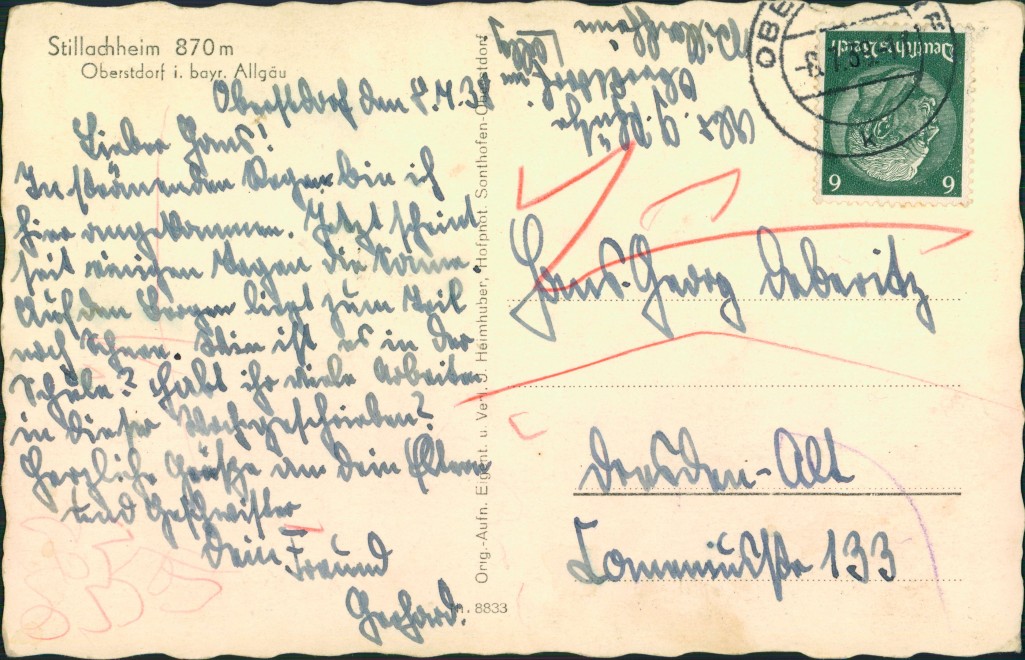 Stillachheim 870 m
Oberstdorf i. bayr. Allgäu
Oberstdorf den 8.7.3
Lieber Hans!
In strömenden Regen bin ich
hier angekommen. Jetzt scheint
seit einigen Tagen die Sonne.
Auf den Bergen liegt zum Teil
noch Schnee. Wie ist es in der
Schule? Habt ihr viele Arbeiten
in dieser Woche geschrieben?
Herzliche Grüße an dein Eltern
und Geschwister
Dein Freund
Gerhard.
Orig.-Aufn. Eigent. u. Verl. J. Heimhuber, Hofphot. Sonthofen-Oberstdorf
M. 8833
Abs. G.
Oberstdorf
Stillachheim
Deutsches Reich
6 6
Hans-Georg
Dresden-Alt
Comeniusstr 133